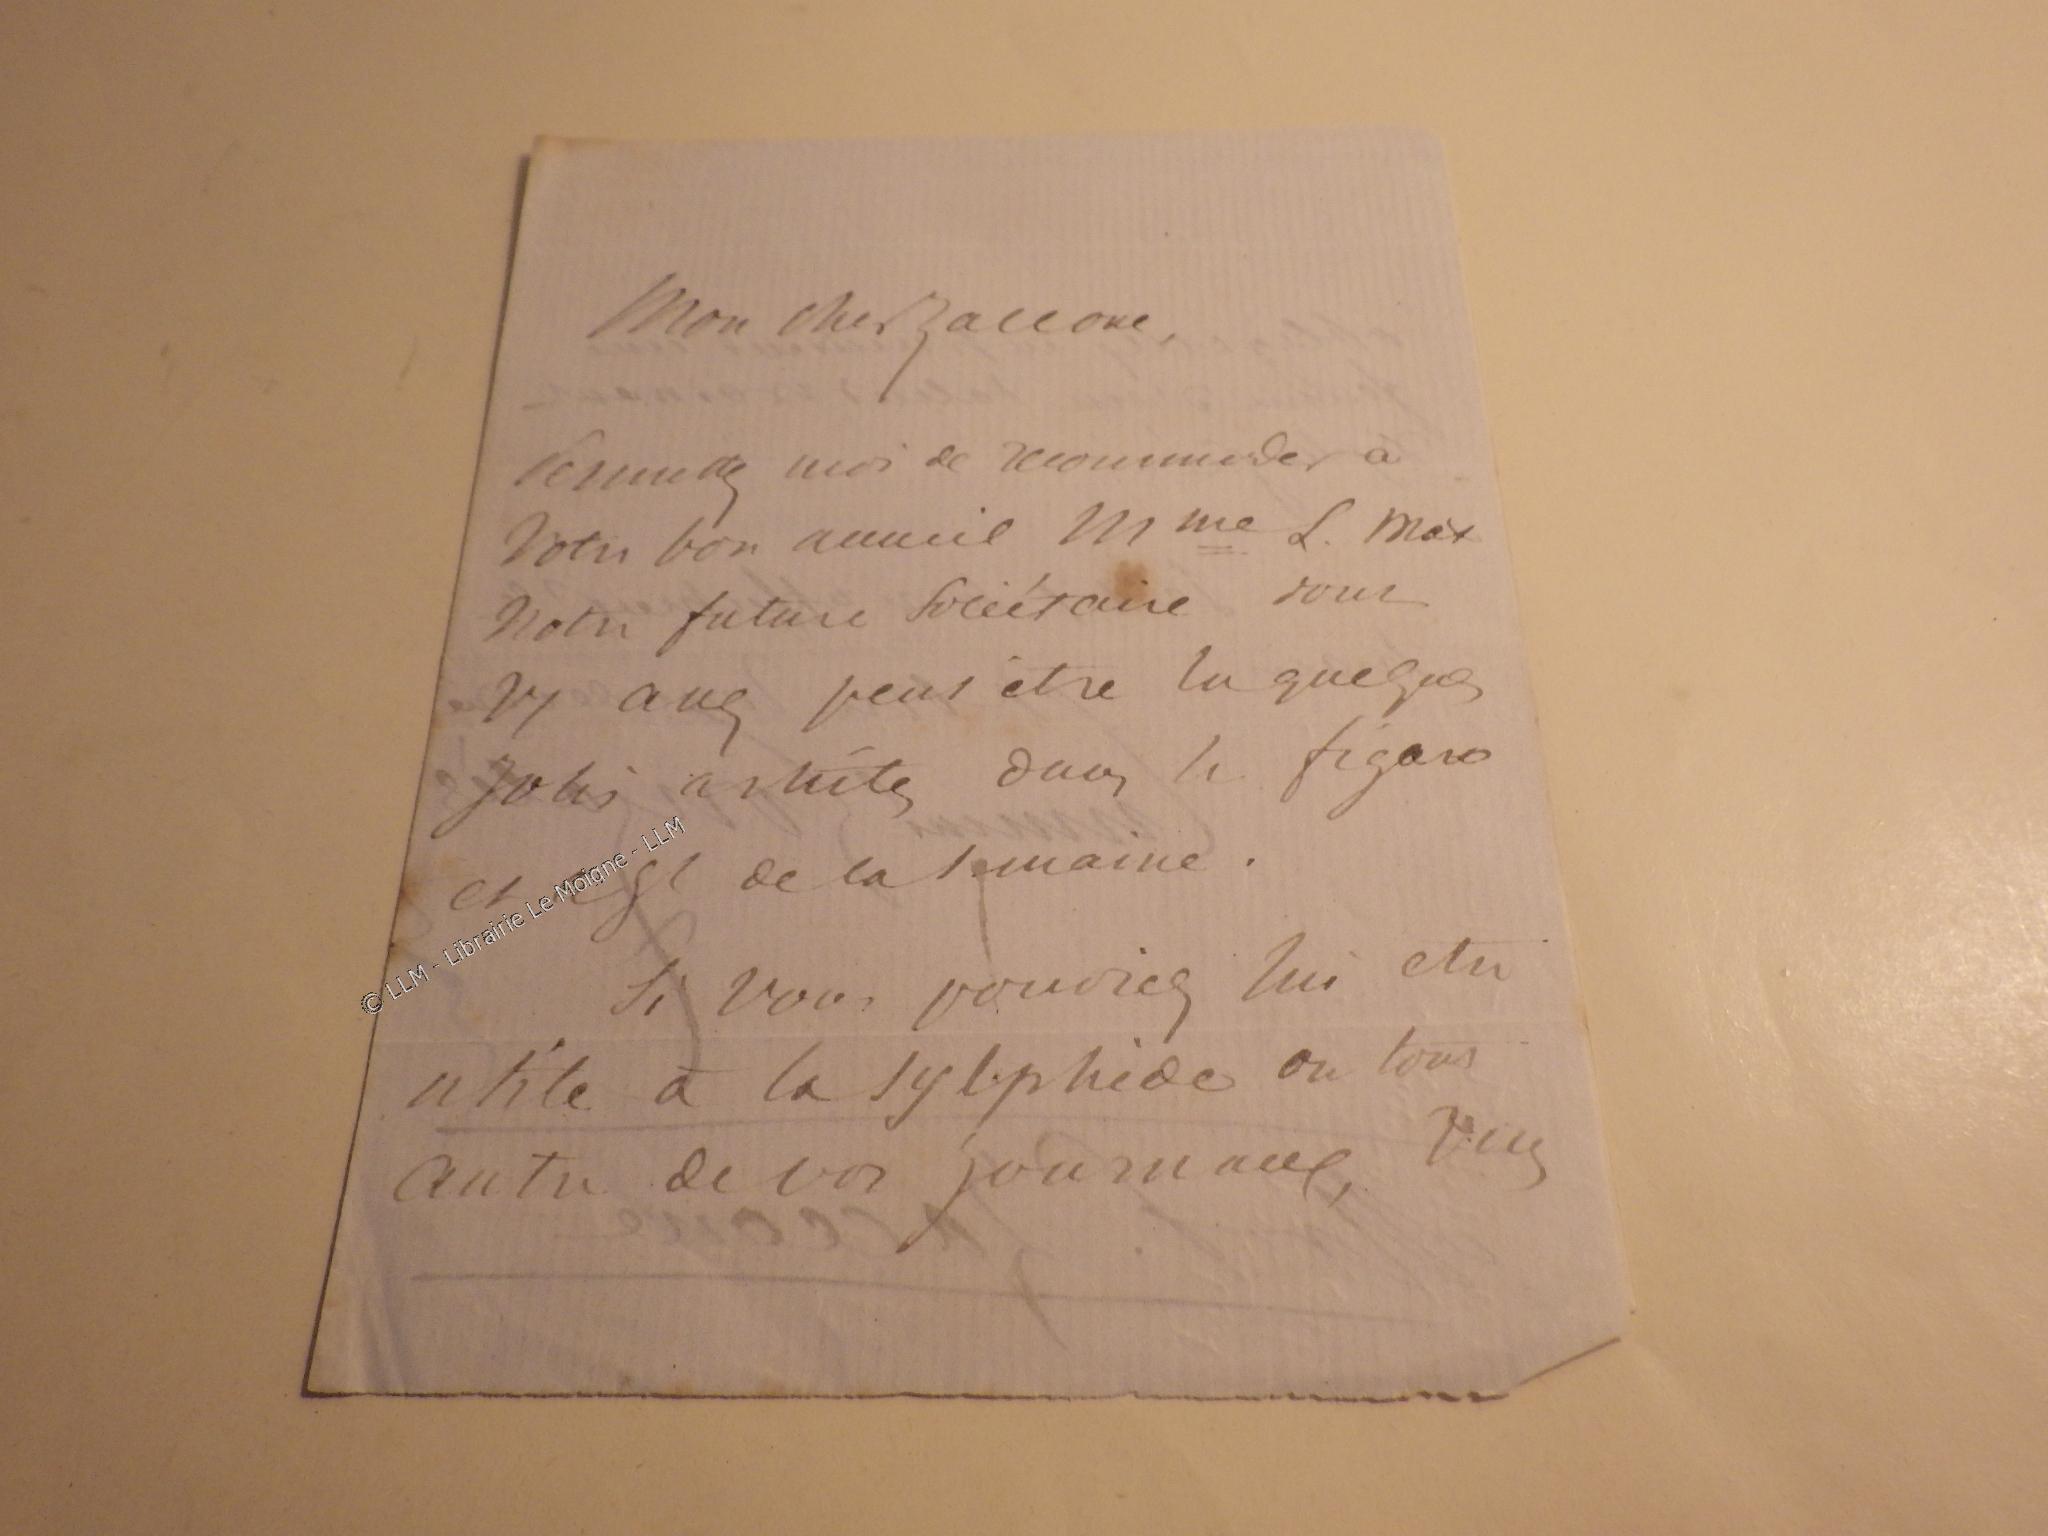 Mon cher Zaccone,
Permettez moi de recommander à
Votre bon accueil Mme L. Max
Notre future Sociétaire dont
Vs avez peut être lu quelques
Jolis articles dans le figaro
et de la Semaine.
Si vous pouviez lui etre
utile à la Sylphide ou tout
autre de vos journaux,
© LLM - Librairie Le Moigne - LLM